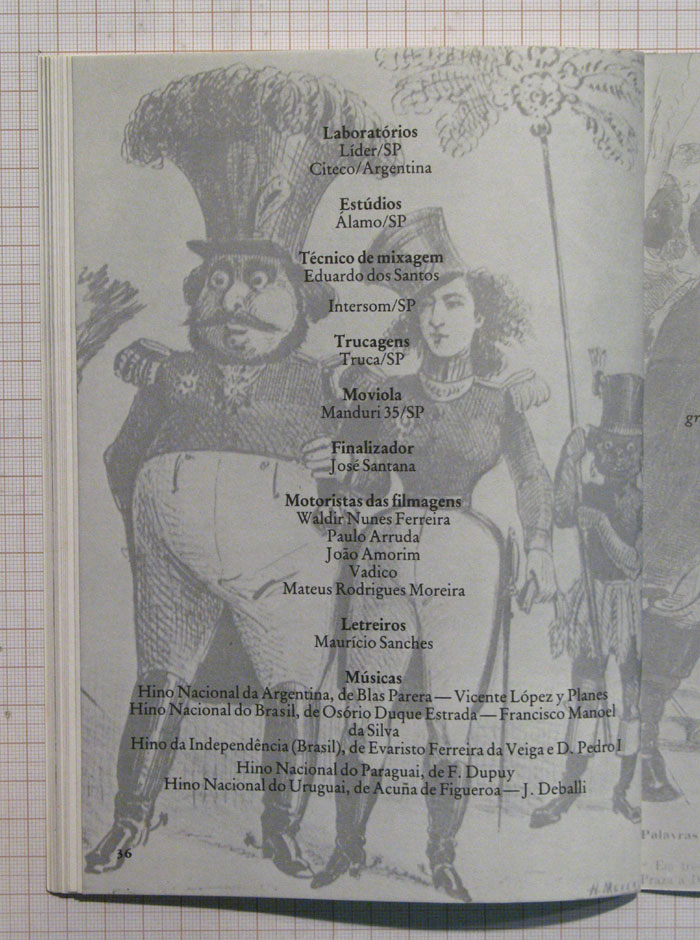 Laboratórios
Líder/SP
Citeco/Argentina
Estúdios
Álamo/SP
Técnico de mixagem
Eduardo dos Santos
Intersom/SP
Trucagens
Truca/SP
Moviola
Manduri 35/SP
Finalizador
José Santana
Motoristas das filmagens
Waldir Nunes Ferreira
Paulo Arruda
João Amorim
Vadico
Mateus Rodrigues Moreira
Letreiros
Maurício Sanches
Músicas
Hino Nacional da Argentina, de Blas Parera — Vicente López y Planes
Hino Nacional do Brasil, de Osório Duque Estrada — Francisco Manoel
da Silva
Hino da Independência (Brasil), de Evaristo Ferreira da Veiga e D. Pedro I
Hino Nacional do Paraguai, de F. Dupuy
Hino Nacional do Uruguai, de Acuña de Figueroa — J. Deballi
36
gr
Palavras